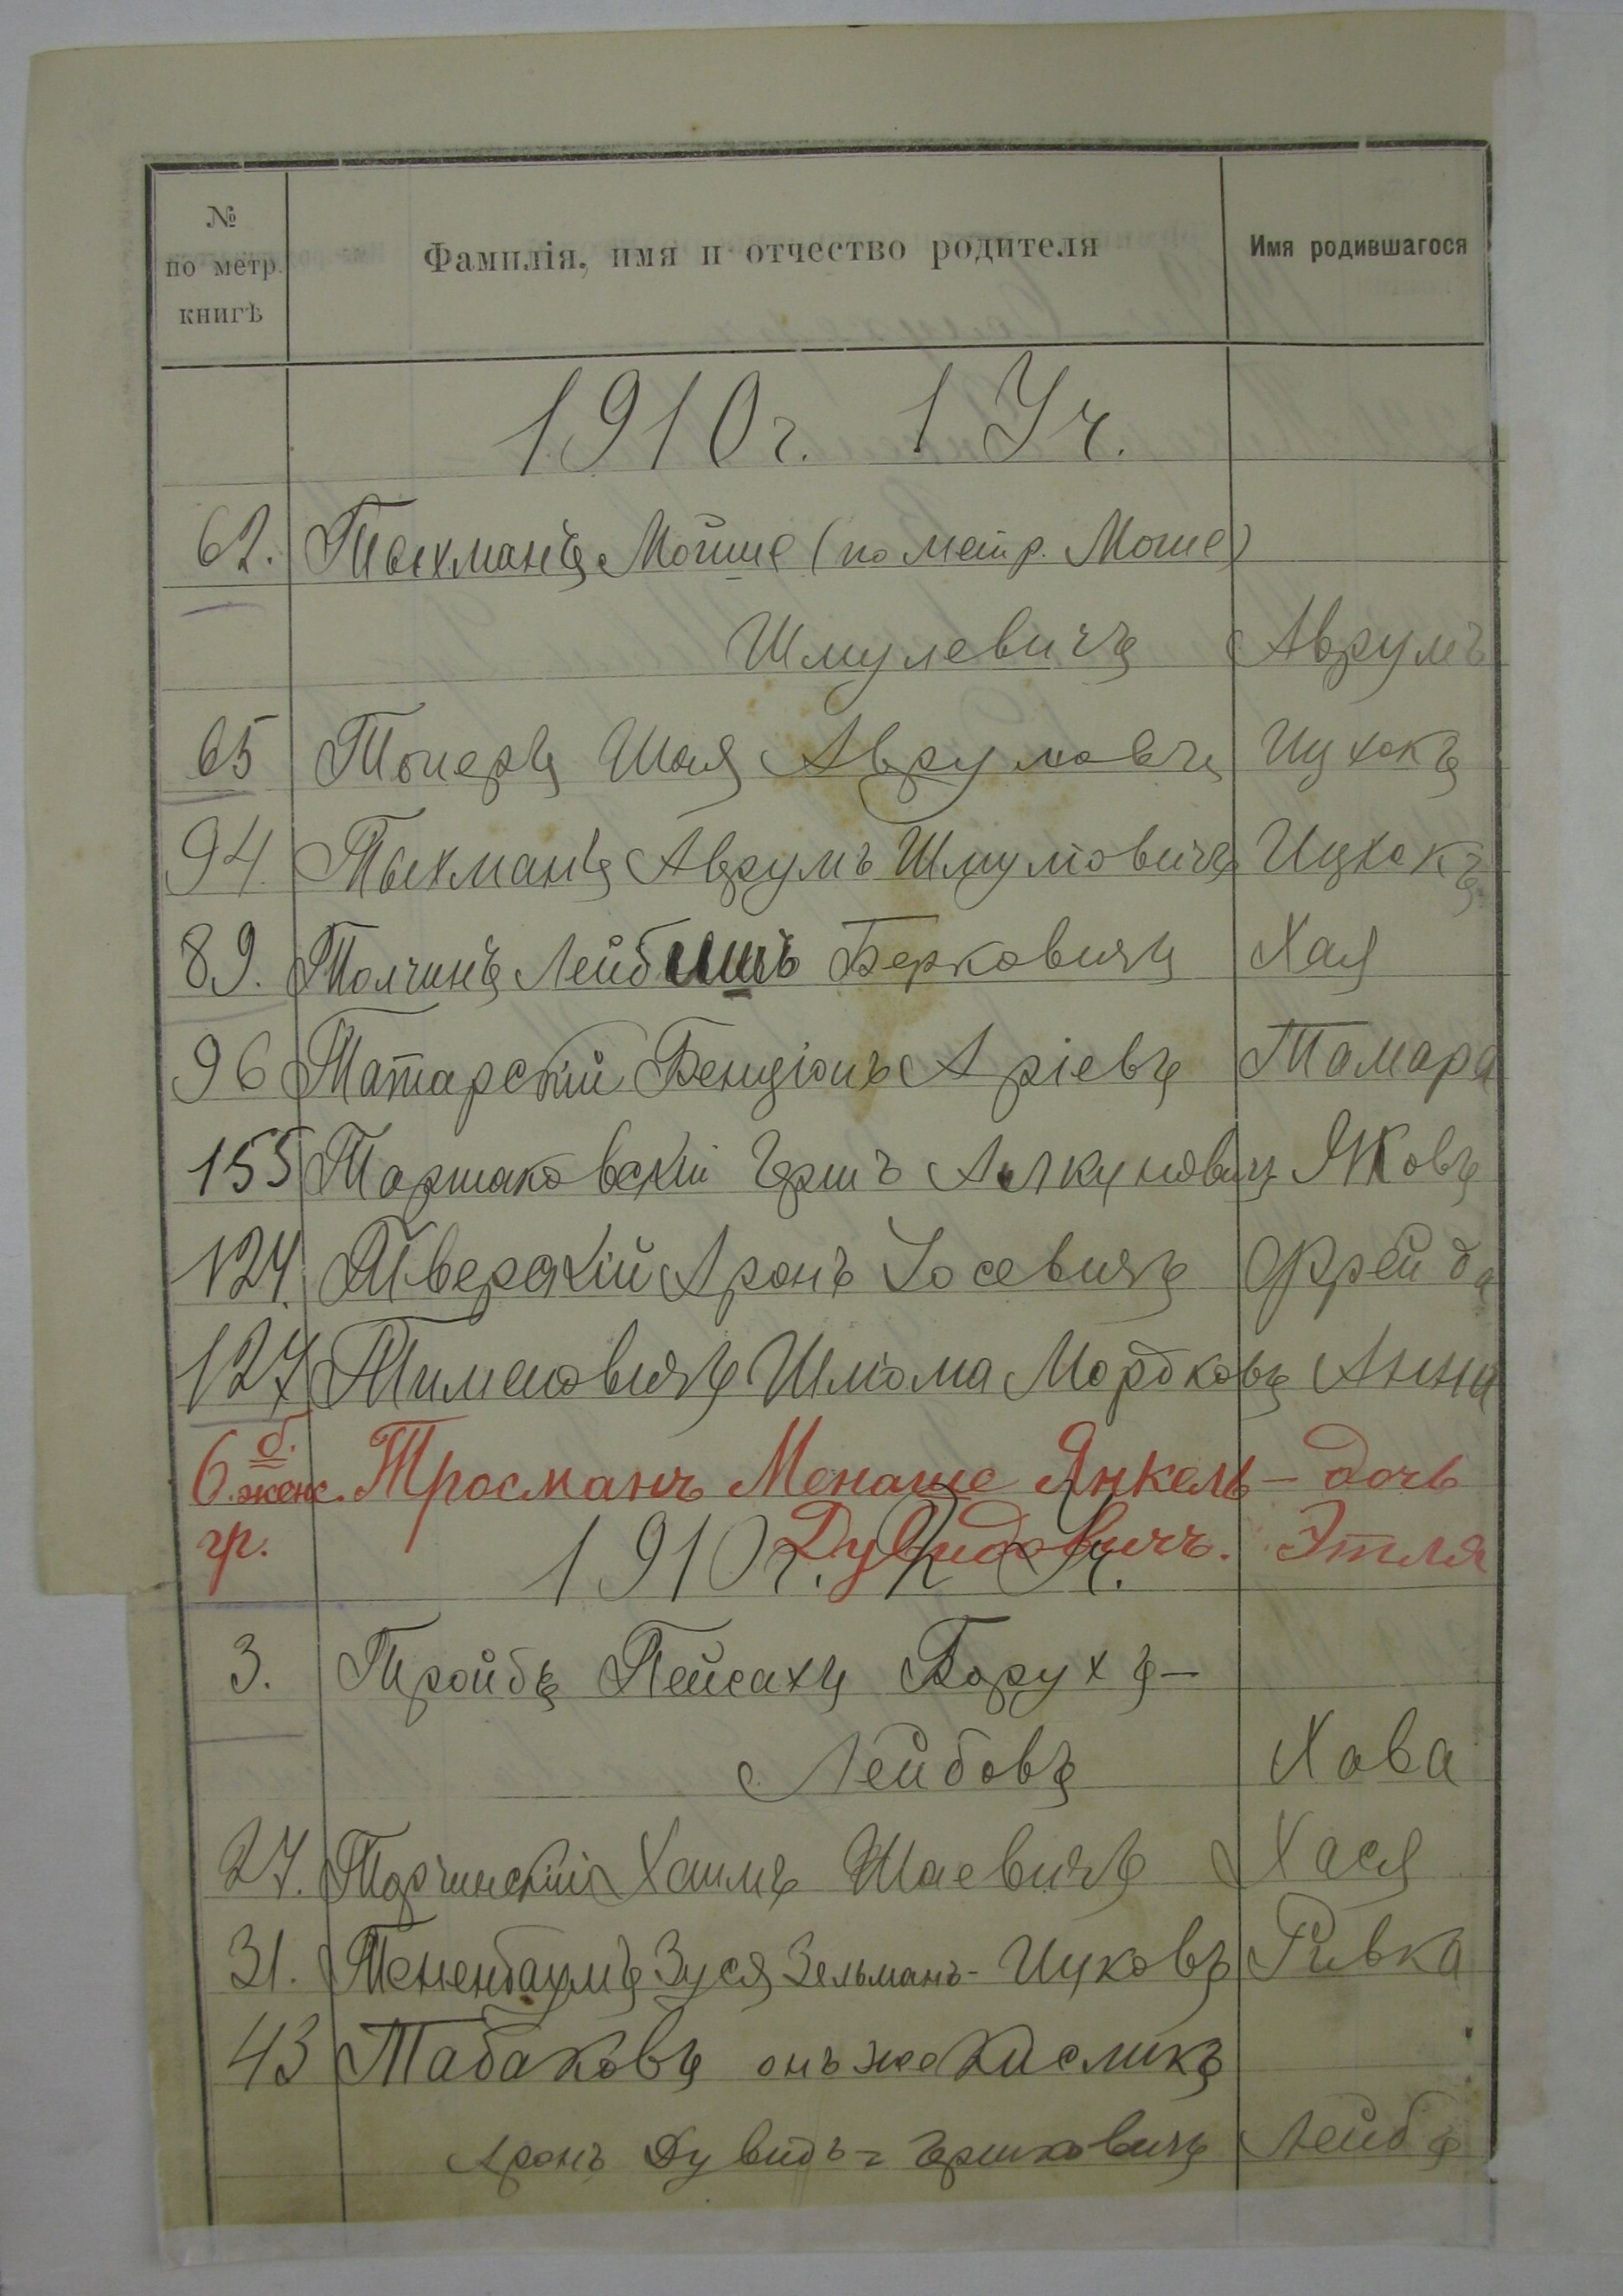 №
по метр.
книгѣ
Фамилія, имя и отчество родителя
Имя родившагося
1910 г. 1 Уч.
62. Тыхманъ Мойше (по метр. Моше)
Шмулевичъ Аврумъ
65 Топеръ Шая Аврумовъ Ицхокъ
94. Тыхманъ Аврумъ Шмулювичъ Ицхокъ
89. Толчинъ Лейбишъ Берковичъ Хая
96 Татарскій Бенціонъ Аріевъ Тамара
155 Таршаковскій Гершъ Яковъ
124. Тверскій Аронъ Іосевичъ Фрейда
127 Шлёма Мордковъ Анна
6. б. женс. Тросманъ Менаше Янкель – дочь
гр. Дувидовичъ. Этля
1910 г. 2 Уч.
3. Тройбъ Пейсахъ Борухъ–
Лейбовъ Хова
27. Торчинскій Хаимъ Шаевичъ Хася
31. Тененбаумъ Зуся Зельманъ-Ицковъ Ривка
43 Табаковъ онъ же Кисликъ
Аронъ Дувидъ= Гершковичъ Лейбъ